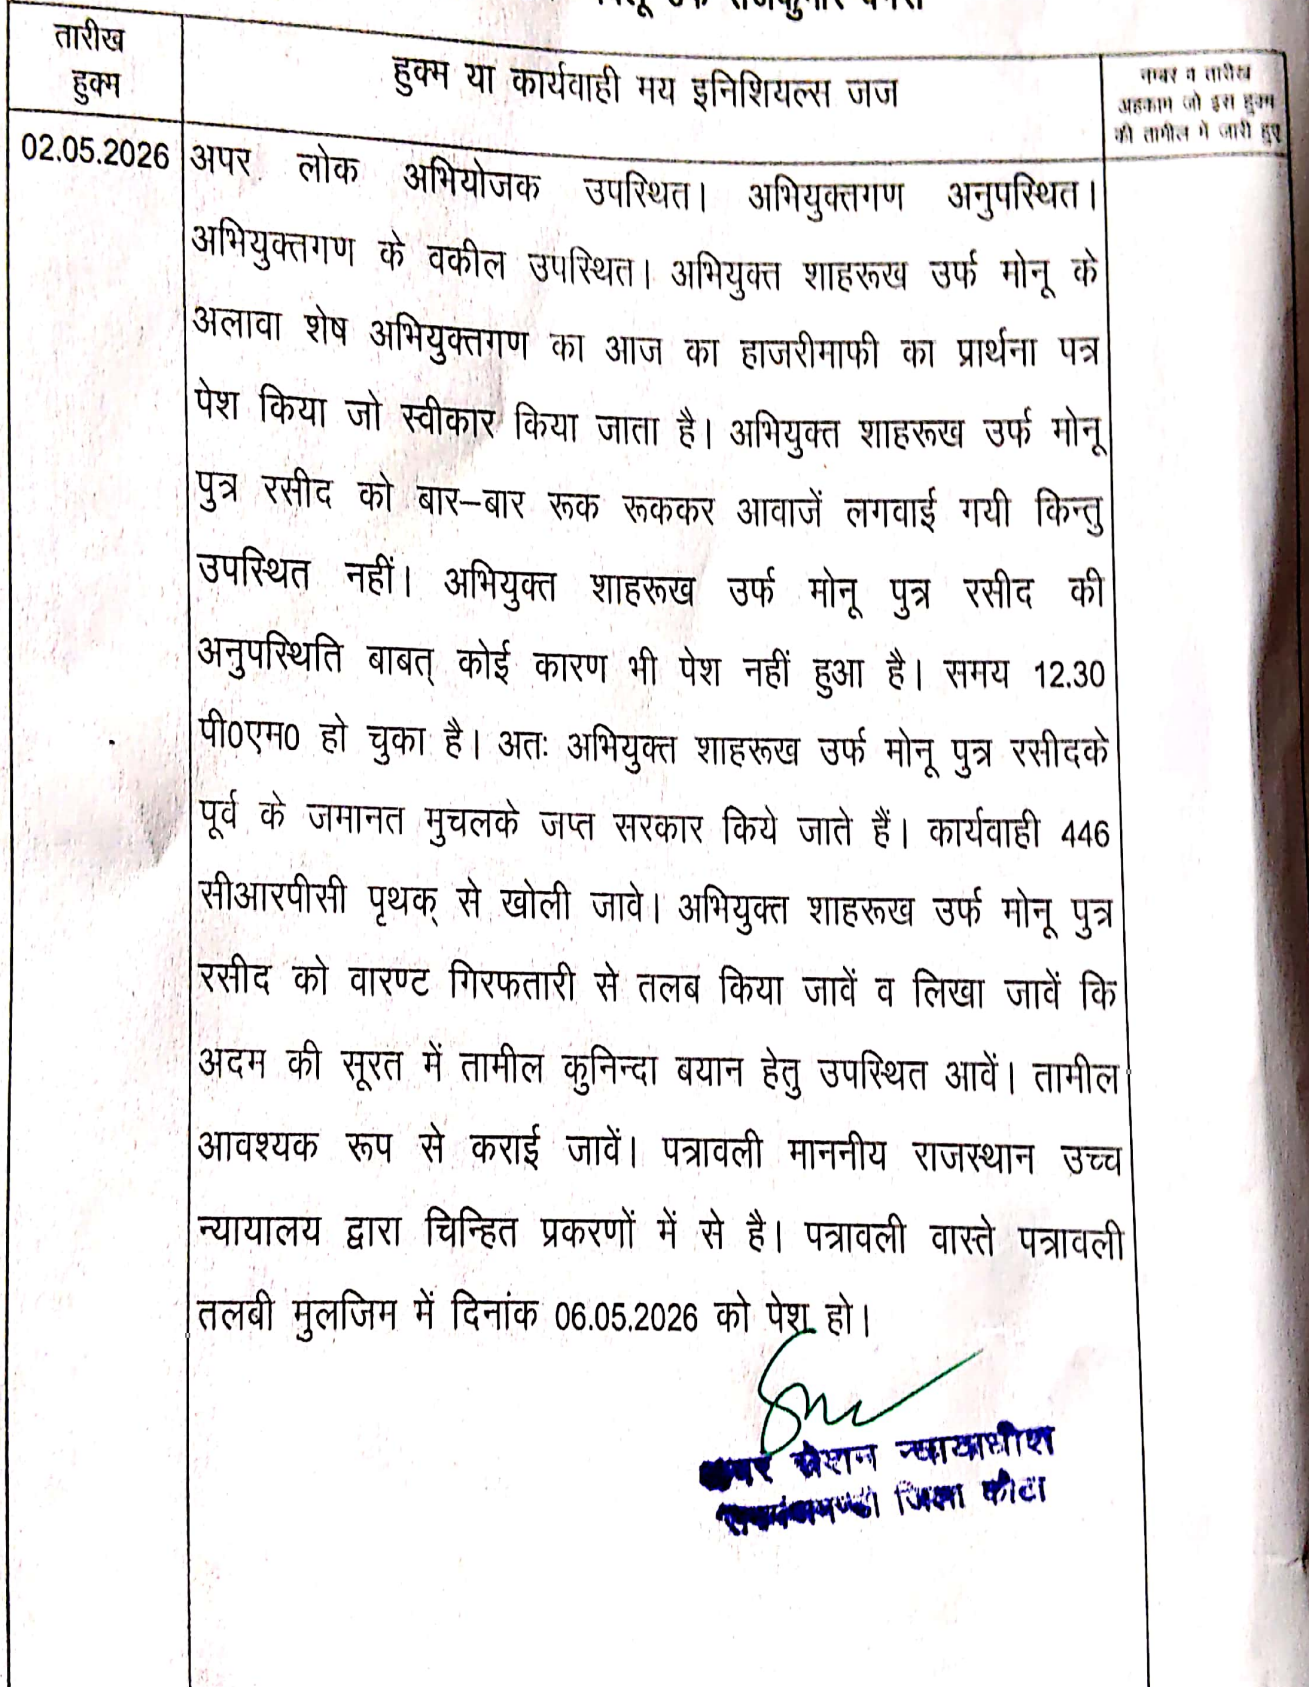 उर्फ राजकुमार
तारीख
हुक्म
हुक्म या कार्यवाही मय इनिशियल्स जज
नम्बर व तारीख
अहकाम जो इस हुक्म
की तामील में जारी हुए
02.05.2026
अपर लोक अभियोजक उपस्थित। अभियुक्तगण अनुपस्थित।
अभियुक्तगण के वकील उपस्थित। अभियुक्त शाहरूख उर्फ मोनू के
अलावा शेष अभियुक्तगण का आज का हाजरीमाफी का प्रार्थना पत्र
पेश किया जो स्वीकार किया जाता है। अभियुक्त शाहरूख उर्फ मोनू
पुत्र रसीद को बार–बार रूक रूककर आवाजें लगवाई गयी किन्तु
उपस्थित नहीं। अभियुक्त शाहरूख उर्फ मोनू पुत्र रसीद की
अनुपस्थिति बाबत् कोई कारण भी पेश नहीं हुआ है। समय 12.30
पी0एम0 हो चुका है। अतः अभियुक्त शाहरूख उर्फ मोनू पुत्र रसीदके
पूर्व के जमानत मुचलके जप्त सरकार किये जाते हैं। कार्यवाही 446
सीआरपीसी पृथक् से खोली जावे। अभियुक्त शाहरूख उर्फ मोनू पुत्र
रसीद को वारण्ट गिरफतारी से तलब किया जावें व लिखा जावें कि
अदम की सूरत में तामील कुनिन्दा बयान हेतु उपस्थित आवें। तामील
आवश्यक रूप से कराई जावें। पत्रावली माननीय राजस्थान उच्च
न्यायालय द्वारा चिन्हित प्रकरणों में से है। पत्रावली वास्ते पत्रावली
तलबी मुलजिम में दिनांक 06.05.2026 को पेश हो।
अपर सेशन न्यायाधीश
जिला कोटा